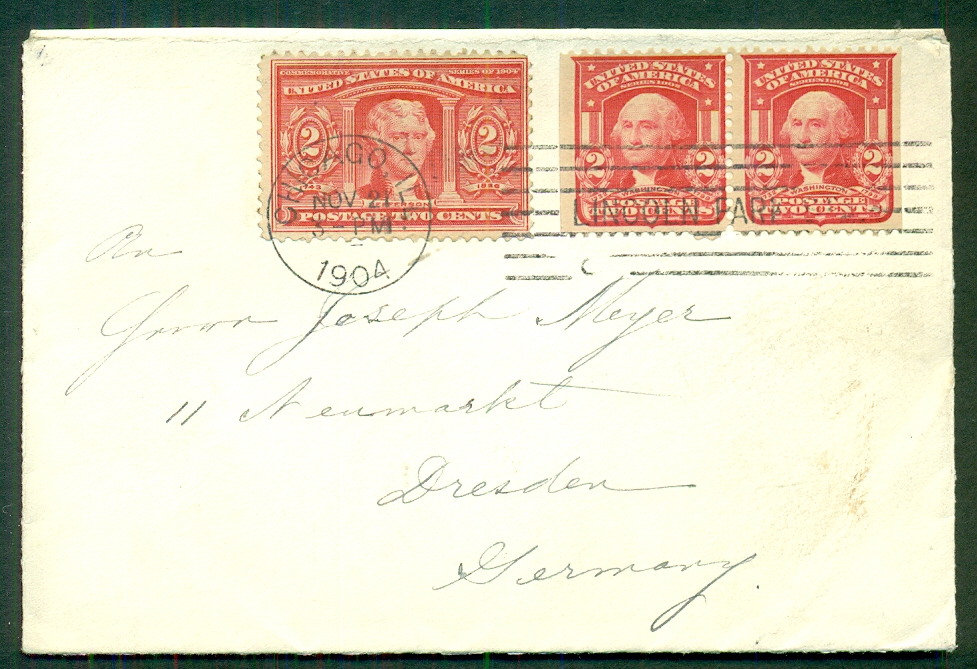 COMMEMORATIVE SERIES OF 1904
UNITED STATES OF AMERICA
2 2
1843 1826
POSTAGE TWO CENTS
UNITED STATES
OF AMERICA
SERIES 1902
2 2
WASHINGTON
UNITED STATES
OF AMERICA
SERIES 1902
2 2
WASHINGTON
POSTAGE
TWO CENTS
CHICAGO, ILL.
NOV 21
3 - PM
1904
LINCOLN PARK
An
Herrn Joseph Meyer
11 Neumarkt
Dresden
Germany.